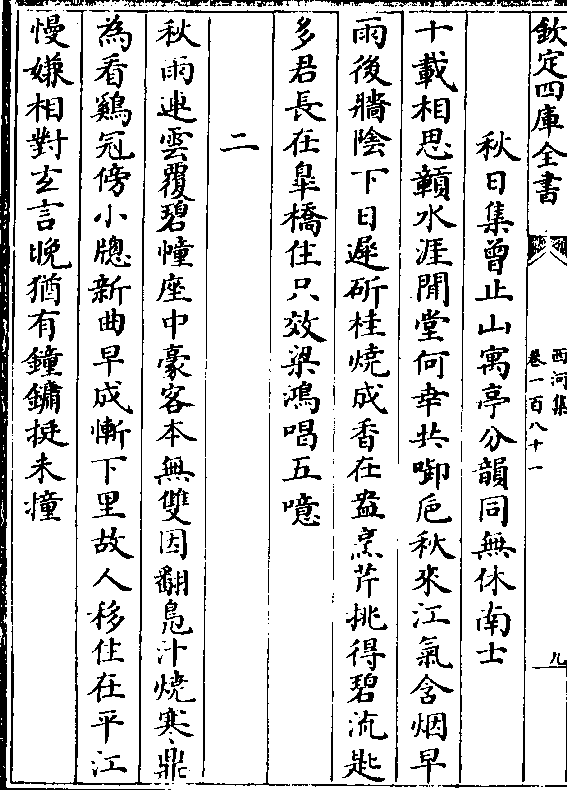 欽定四庫全書
西河集
卷一百八十一
九
秋日集曾止山寓亭分韻同無休南士
十載相思贑水涯開堂何幸共啣巵秋來江氣含烟早
雨後牆陰下日遲斫桂燒成香在盎烹芹挑得碧流匙
多君長在臯橋住只效梁鴻唱五噫
二
秋雨連雲覆碧幢座中豪客本無雙因翻鳬汁燒寒鼎
為看鷄冠傍小牕新曲早成慚下里故人移住在平江
慢嫌相對玄言晚猶有鐘鏞挺未撞